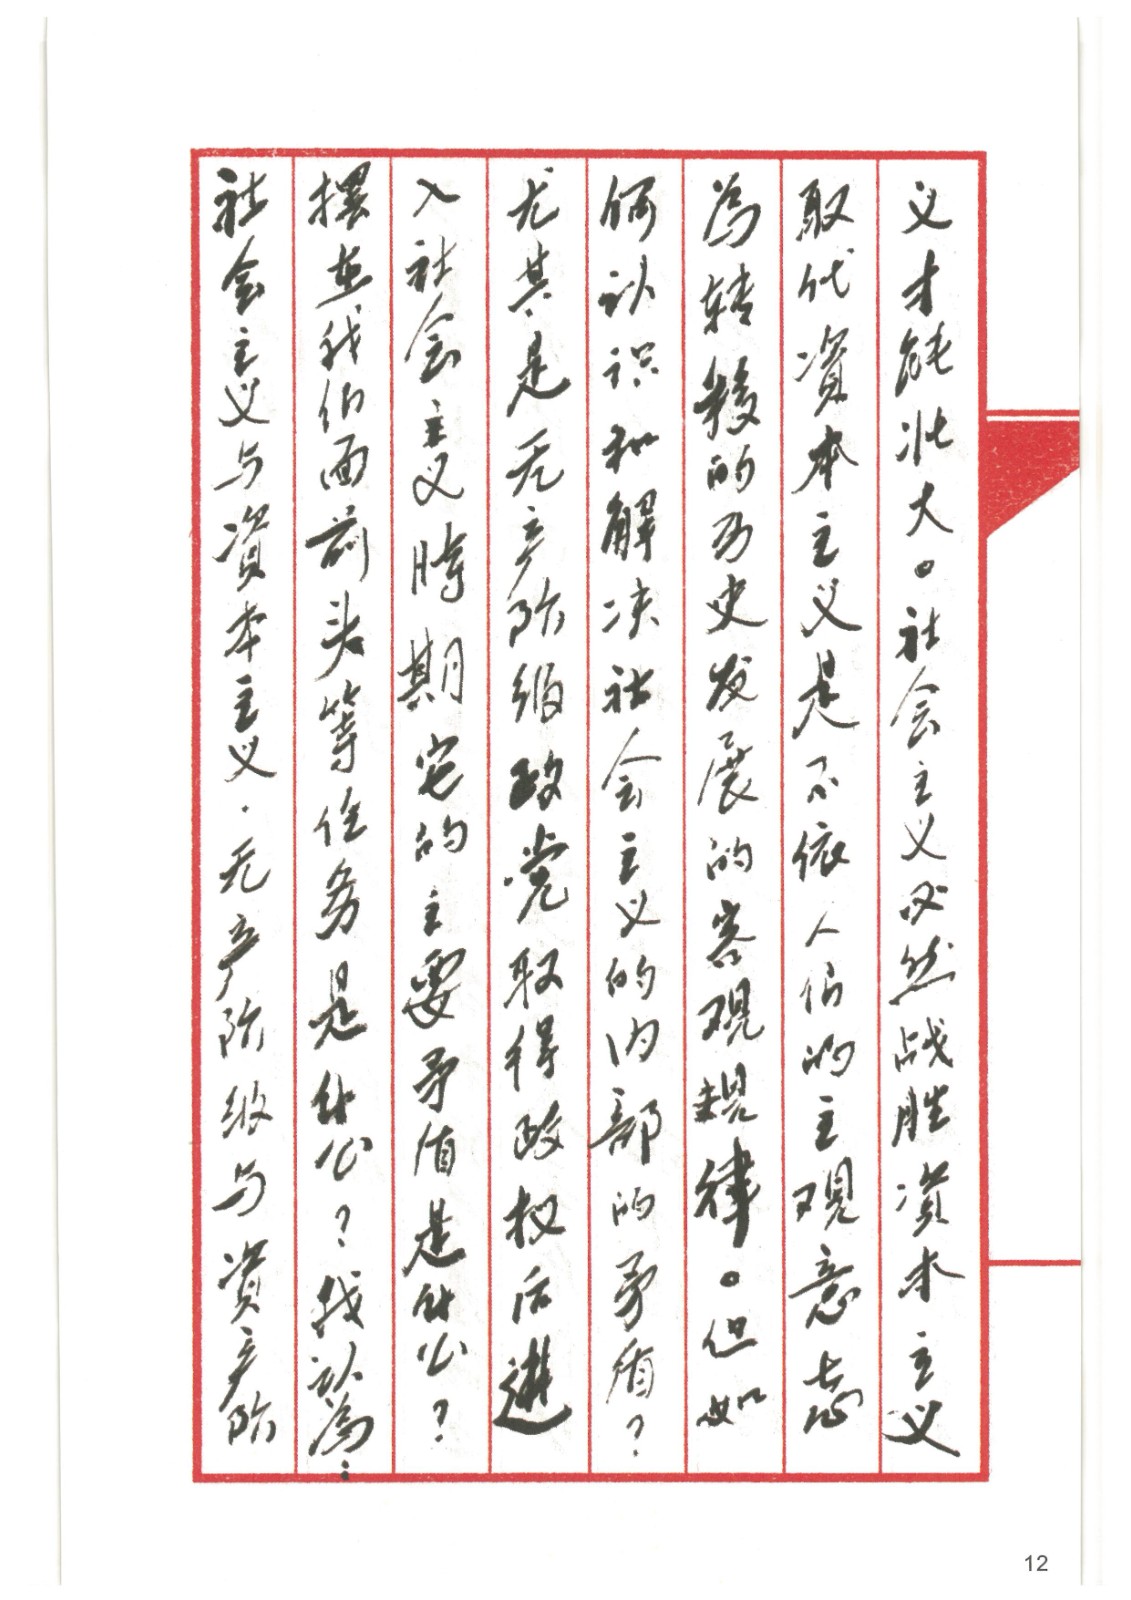 义才能壮大。社会主义必然战胜资本主义
取代资本主义是不依人们的主观意志
為转移的历史发展的客观规律。但如
何认识和解决社会主义的内部的矛盾？
尤其是无产阶级政党取得政权后进
入社会主义時期它的主要矛盾是什么？
摆在我们面前头等任务是什么？我认為：
社会主义与资本主义．无产阶级与资产阶
12